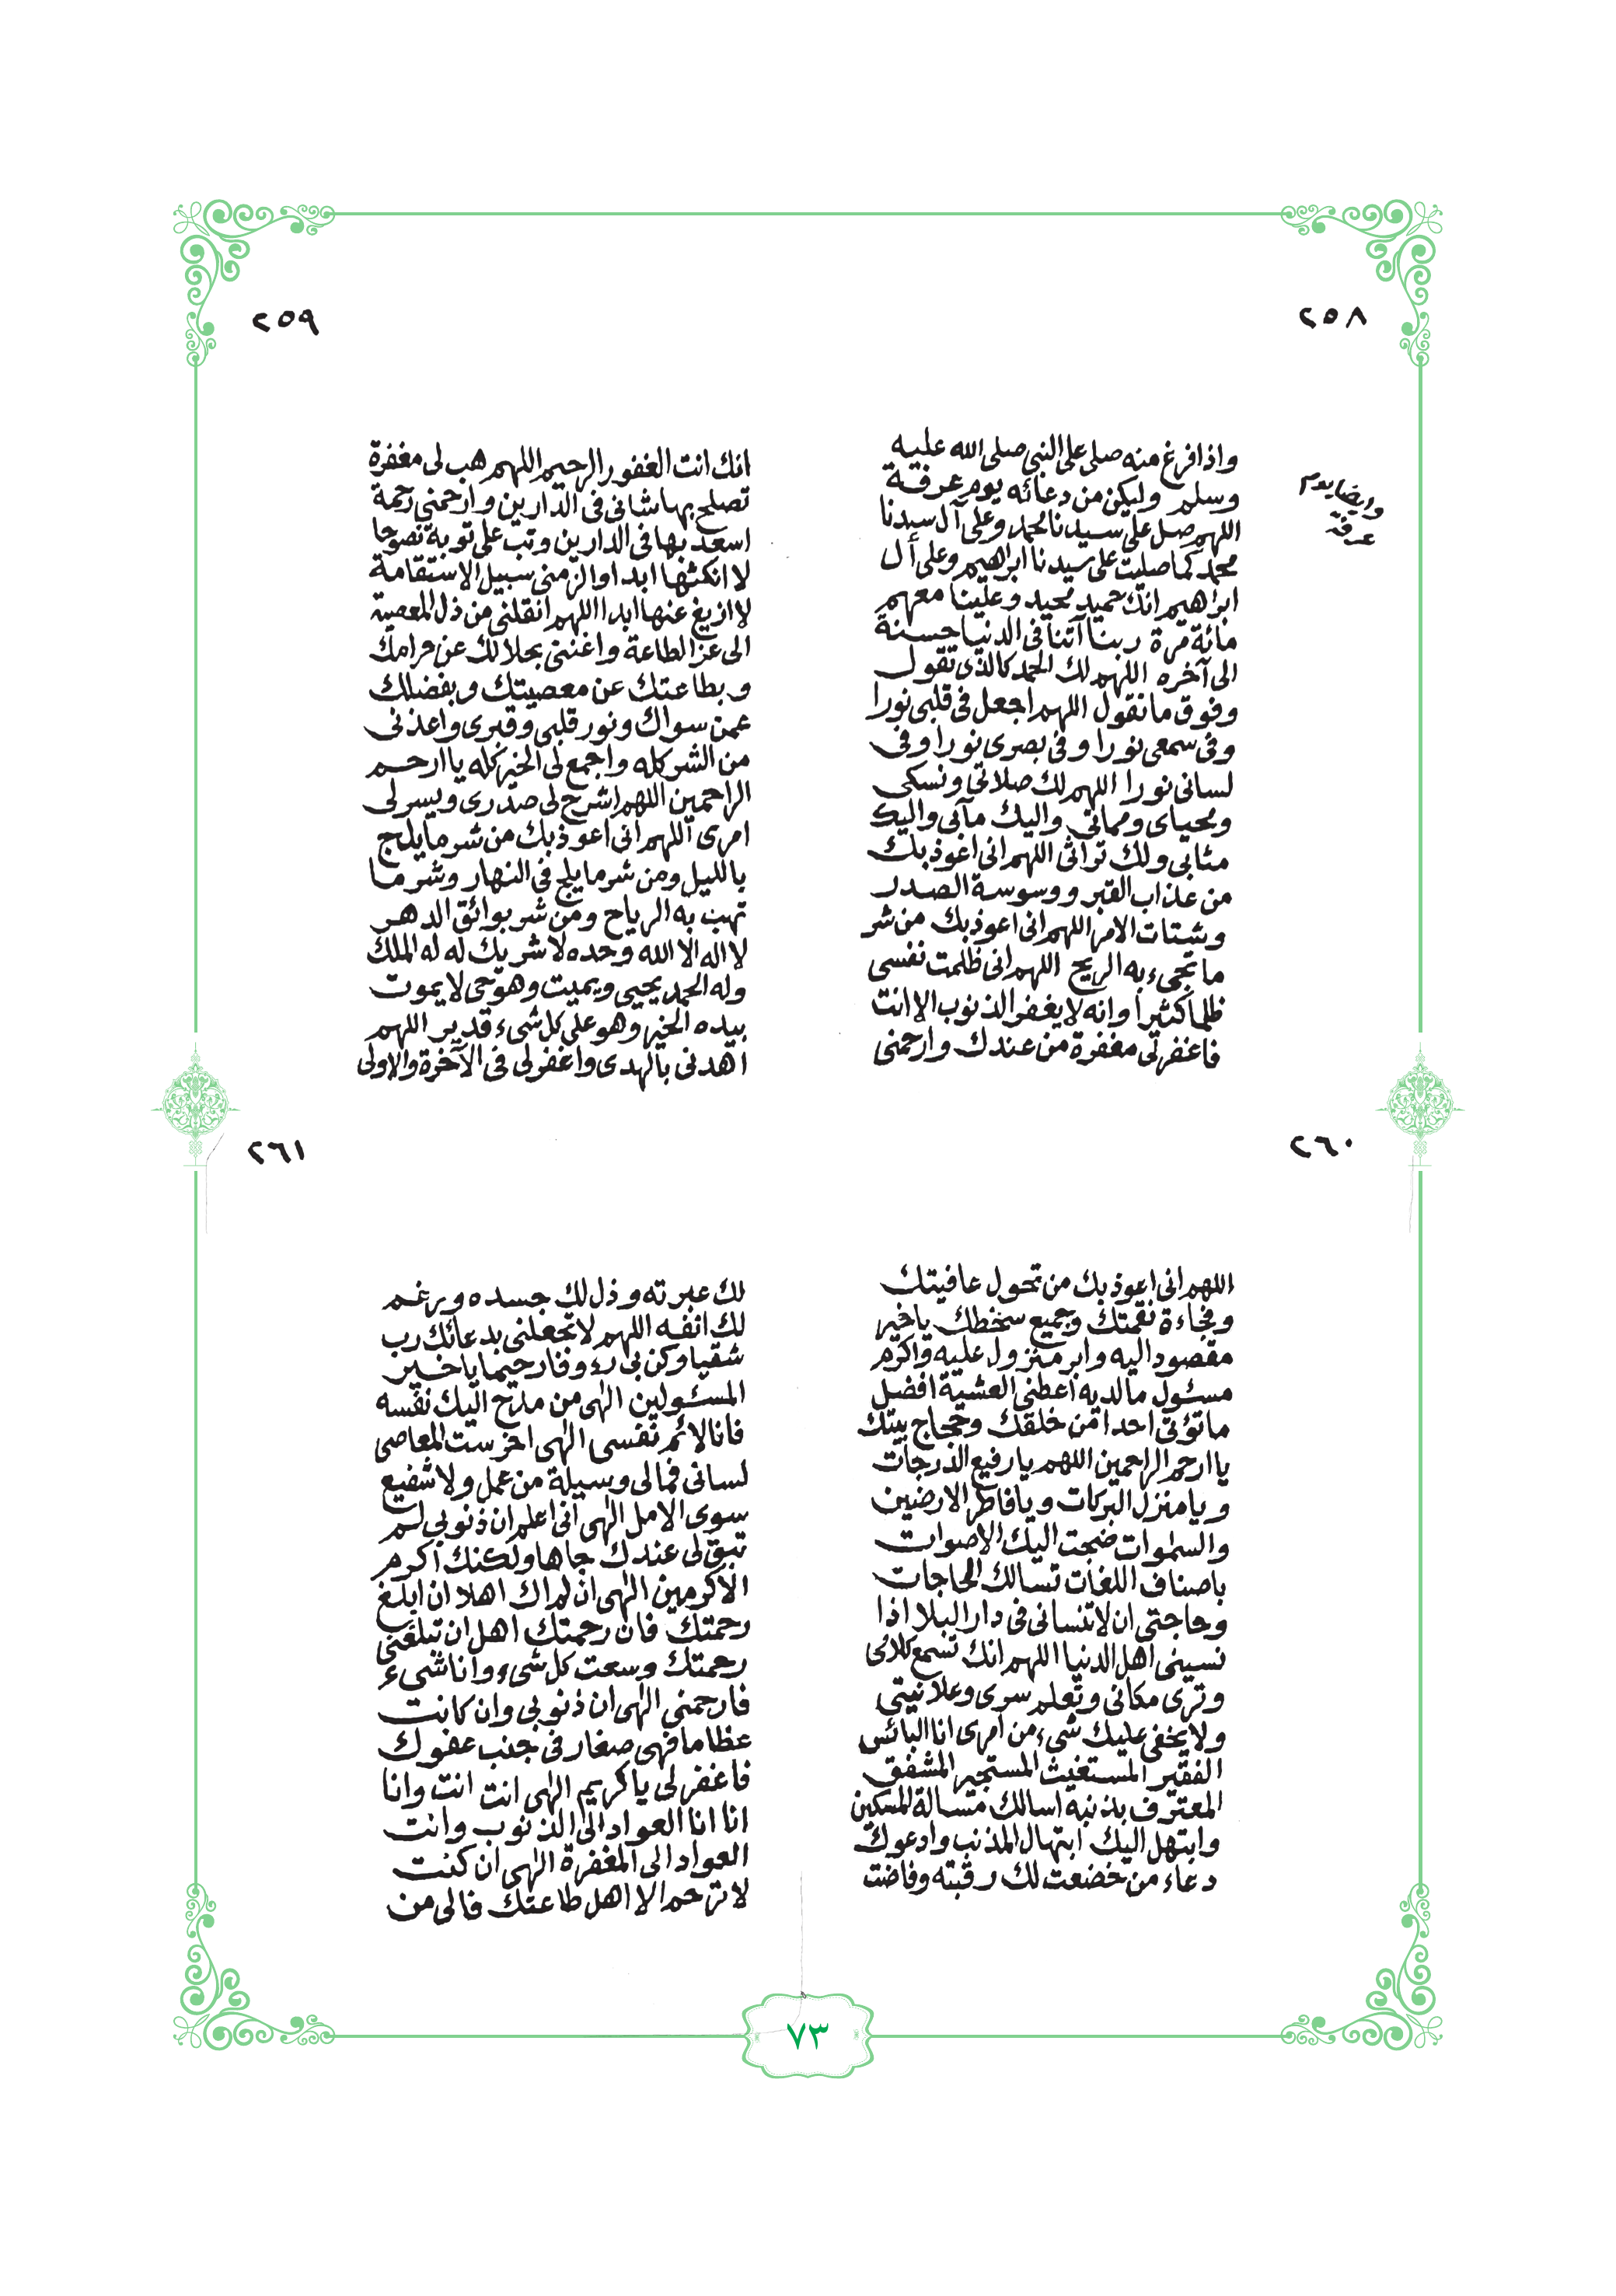 ٢٥٨
وايضا يوم
عرفة
واذا فرغ منه صلى على النبي صلى الله عليه
وسلم وليكن من دعائه يوم عرفة
اللهم صل على سيدنا محمد وعلى آل سيدنا
محمد كما صليت على سيدنا ابراهيم وعلى أل
ابراهيم انك حميد مجيد وعلينا معهم
مائة مرة ربنا آتنا فى الدنيا حسنة
الى آخره اللهم لك الحمد كالذى تقول
وفوق ما نقول اللهم اجعل فى قلبى نورا
وفى سمعى نورا وفى بصرى نورا وفى
لسانى نورا اللهم لك صلاتى ونسكى
ومحياى ومماتى واليك مآبى واليك
مثابى ولك تراثى اللهم انى اعوذ بك
من عذاب القبر ووسوسة الصدر
وشتات الامر اللهم انى اعوذ بك من شر
ما تجىء به الريح اللهم انى ظلمت نفسى
ظلما كثيرا وانه لا يغفر الذنوب الا انت
فاغفر لى مغفرة من عندك وارحمنى
٢٥٩
انك انت الغفور الرحيم اللهم هب لى مغفرة
تصلح بها شانى فى الدارين وارحمني رحمة
اسعد بها فى الدارين وتب على توبة نصوحا
لا انكثها ابدا والزمنى سبيل الاستقامة
لا ازيغ عنها ابدا اللهم انقلنى من ذل المعصية
الى عز الطاعة واغننى بحلالك عن حرامك
وبطاعتك عن معصيتك وبفضلك
عمن سواك ونور قلبى وقبرى واعذنى
من الشر كله واجمع لى الخير كله يا ارحم
الراحمين اللهم اشرح لى صدرى ويسر لى
امرى اللهم انى اعوذ بك من شر ما يلج
بالليل ومن شر ما يلج فى النهار وشر ما
تهب به الرياح ومن شر بوائق الدهر
لا اله الا الله وحده لا شريك له له الملك
وله الحمد يحيى ويميت وهو حى لا يموت
بيده الخير وهو على كل شىء قدير اللهم
اهدنى بالهدى واغفر لى فى الآخرة والاولى
٢٦٠
اللهم انى اعوذ بك من تحول عافيتك
وفجاءة نقمتك وجميع سخطك يا خير
مقصود اليه وابر منزول عليه واكرم
مسئول ما لديه أعطنى العشية افضل
ما تؤتى احدا من خلقك وحجاج بيتك
يا ارحم الراحمين اللهم يا رفيع الدرجات
ويا منزل البركات ويا فاطر الارضين
والسموات ضجت اليك الاصوات
باصناف اللغات تسالك الحاجات
وحاجتى ان لا تنسانى فى دار البلا اذا
نسينى اهل الدنيا اللهم انك تسمع كلامى
وترى مكانى وتعلم سرى وعلانيتى
ولا يخفى عليك شىء من امرى انا البائس
الفقير المستغيث المستجير المشفق
المعترف بذنبه اسالك مسالة المسكين
وابتهل اليك ابتهال المذنب وادعوك
دعاء من خضعت لك رقبته وفاضت
٢٦١
لك عبرته وذل لك جسده ورغم
لك انفه اللهم لا تجعلنى بدعائك رب
شقيا وكن بى رءوفا رحيما يا خير
المسئولين الهى من مدح اليك نفسه
فانا لائم نفسى الهى اخرست المعاصى
لسانى فمالى وسيلة من عمل ولا شفيع
سوى الامل الهى انى اعلم ان ذنوبى لم
تبق لى عندك جاها ولكنك اكرم
الاكرمين الهى ان لم اك اهلا ان ابلغ
رحمتك فان رحمتك اهل ان تبلغنى
رحمتك وسعت كل شىء وانا شىء
فارحمني الهى ان ذنوبى وان كانت
عظاما فهى صغار فى جنب عفوك
فاغفر لى يا كريم الهى انت انت وانا
انا انا العواد الى الذنوب وانت
العواد الى المغفرة الهى ان كنت
لا ترحم الا اهل طاعتك فالى من
٧٣